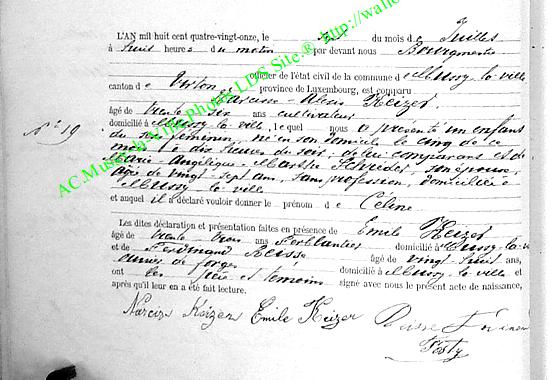 L'AN mil huit cent quatre-vingt-onze, le six du mois de Juillet
à huit heures du matin par devant nous Bourgmestre
officier de l'état civil de la commune de Mussy-la-ville
canton de Virton province de Luxembourg, est comparu
Alexis Keizer
âgé de trente six ans cultivateur
domicilié à Mussy la ville, lequel nous a présenté un enfant
N° 19
du sexe féminin né en son domicile le cinq de ce
mois à dix heures du soir, de lui comparant et de
Marie-Angélique-Marthe son épouse,
âgée de vingt-sept ans, sans profession, domiciliée à
Mussy la ville
et auquel il a déclaré vouloir donner le prénom de Céline
Les dites déclaration et présentation faites en présence de Emile Keizer
âgé de trente trois ans Ferblantier domicilié à Mussy-la-v
et de Ferdinand âgé de vingt huit ans,
ouvrier de forges domicilié à Mussy la ville et
ont les père et témoins signé avec nous le présent acte de naissance,
après qu'il leur en a été fait lecture.
Narcis Keizer Emile Keizer
AC.Musson-Ville Photos LDS Site.® http://wallo